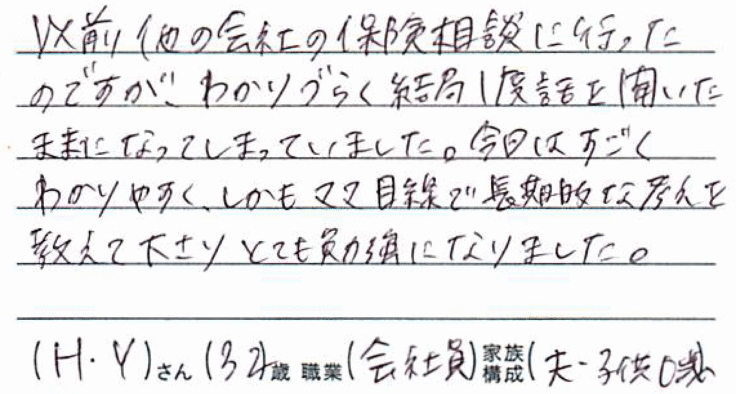 以前他の会社の保険相談に行った
のですが、わかりづらく結局1度話を聞いた
ままになってしまっていました。今日はすごく
わかりやすく、しかもママ目線で長期的な考えを
教えて下さりとても勉強になりました。
(H・Y)さん(32歳 職業(会社員)家族構成(夫・子供0歳